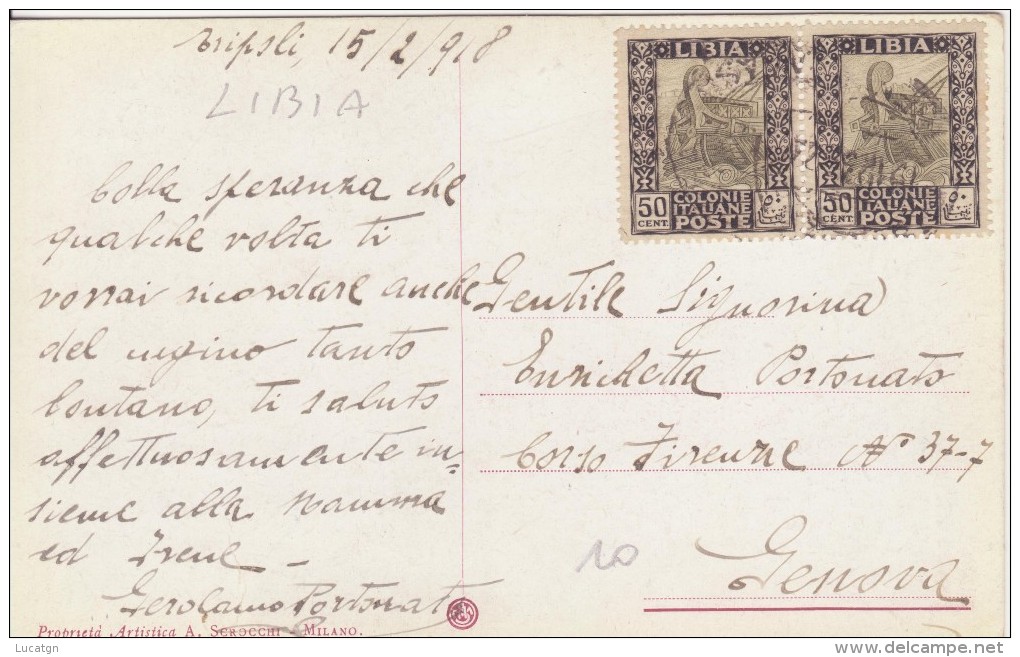 Tripoli, 15/2/918
LIBIA
Colla speranza che
qualche volta ti
vorrai ricordare anche
del cugino tanto
lontano, ti saluto
affettuosamente in-
sieme alla Mamma
ed Irene -
Gerolamo Portonato
Proprietà Artistica A. SCROCCHI - MILANO.
LIBIA
50 CENT.
COLONIE
ITALIANE
POSTE
LIBIA
50 CENT.
COLONIE
ITALIANE
POSTE
Gentile Signorina
Enrichetta Portonato
Corso Firenze No 37-7
Genova
10
Lucatgn
www.delcampe.net